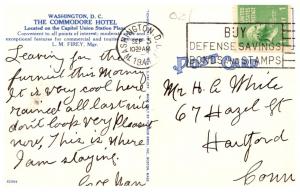 WASHINGTON, D. C.
THE COMMODORE HOTEL
Located on the Capitol Union Station Plaza
Convenient to all points of interest; moderate
exceptional features for commercial and tourist
L. M. FIREY, Mgr.
Leaving for the
this Morning
It is very cool here
rained all last nite
don't look very Pleasant
now, This is where
I am staying.
WASHINGTON, D.C.
SEP
1030 AM
BUY
DEFENSE SAVINGS
BONDS AND STAMPS
POST CARD
1¢
Mr H. A. White
67 Hazel St
Hartford
Conn